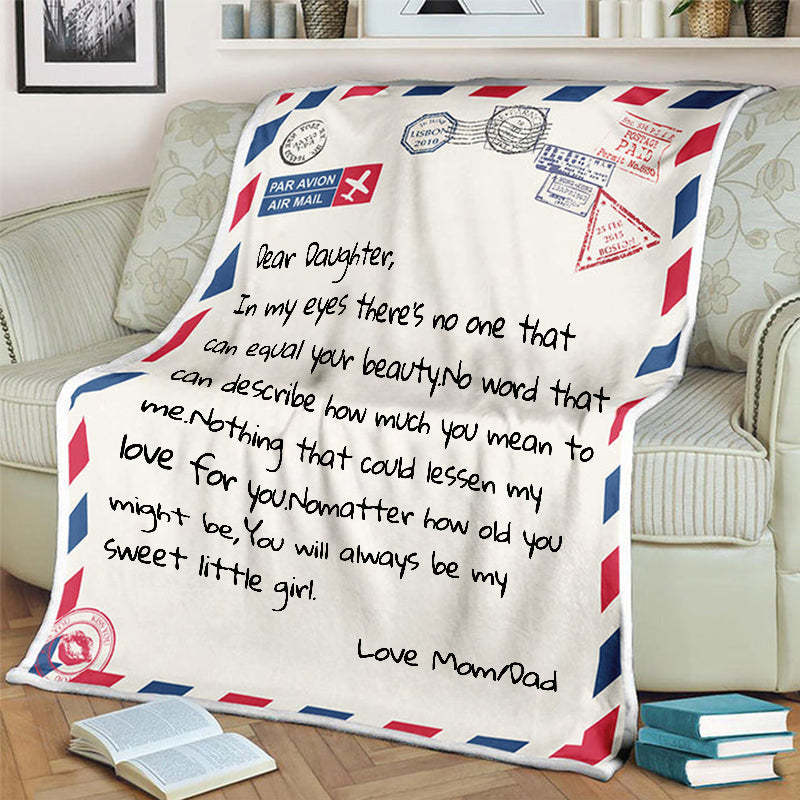 LISBON
2010
POSTAGE
PAID
Permit No.
PAR AVION
AIR MAIL
BOSTON
Dear Daughter,
In my eyes there's no one that
can equal your beauty.No word that
can describe how much you mean to
me.Nothing that could lessen my
love for you.Nomatter how old you
might be,You will always be my
sweet little girl.
Love Mom/Dad
KISS YOU